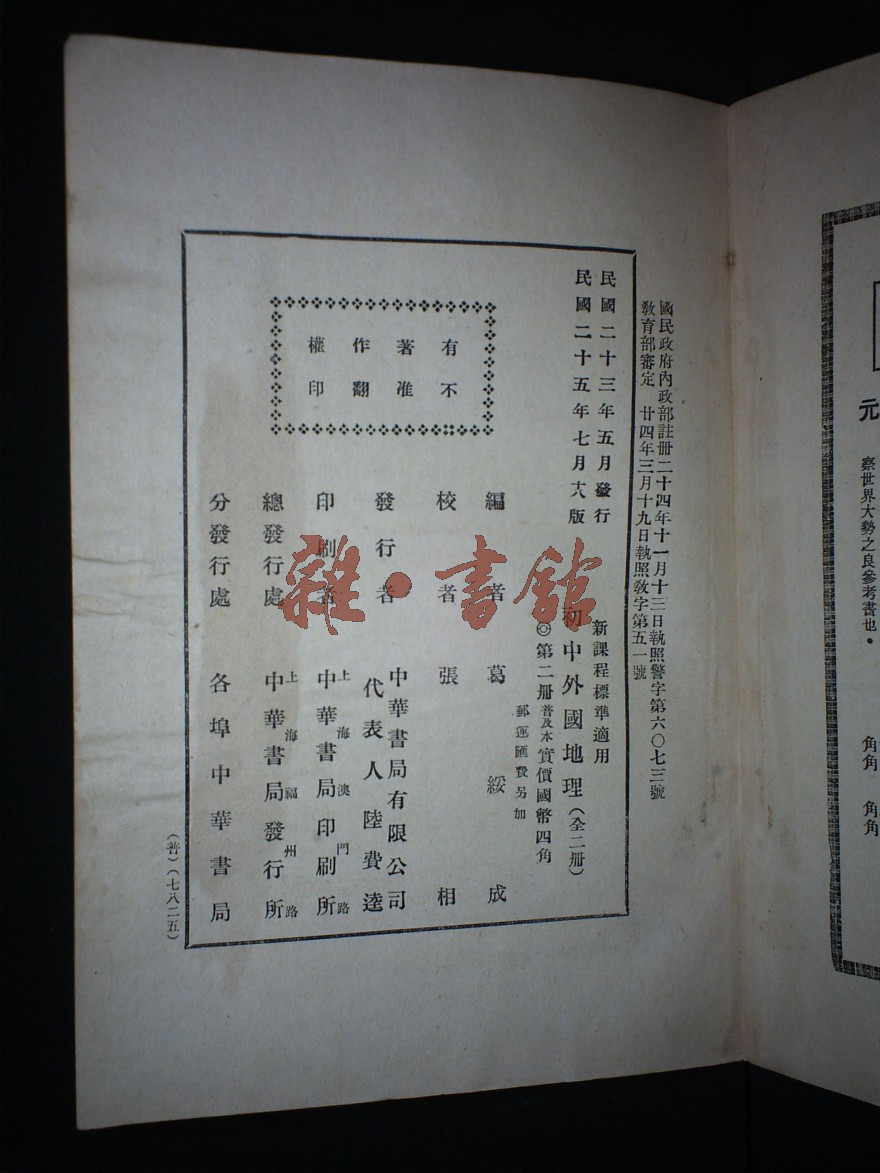 元
察世界大勢之良參考書也・
角角
角角
國民政府內政部註冊二十四年十一月十三日執照警字第六〇七三號
教育部審定 廿四年三月十九日執照教字第五一號
民國二十三年五月發行
民國二十五年七月 版
有著作權
不准翻印
新課程標準適用
初中外國地理(全二冊)
◎第二冊 普及本 實價國幣四角
郵運匯費另加
編者 葛綏成
校者 張相
發行者 中華書局有限公司
代表人 陸費逵
印刷者 上海澳門路
中華書局印刷所
總發行處 上海福州路
中華書局發行所
分發行處 各埠中華書局
(普)(七八二五)
雜・書館